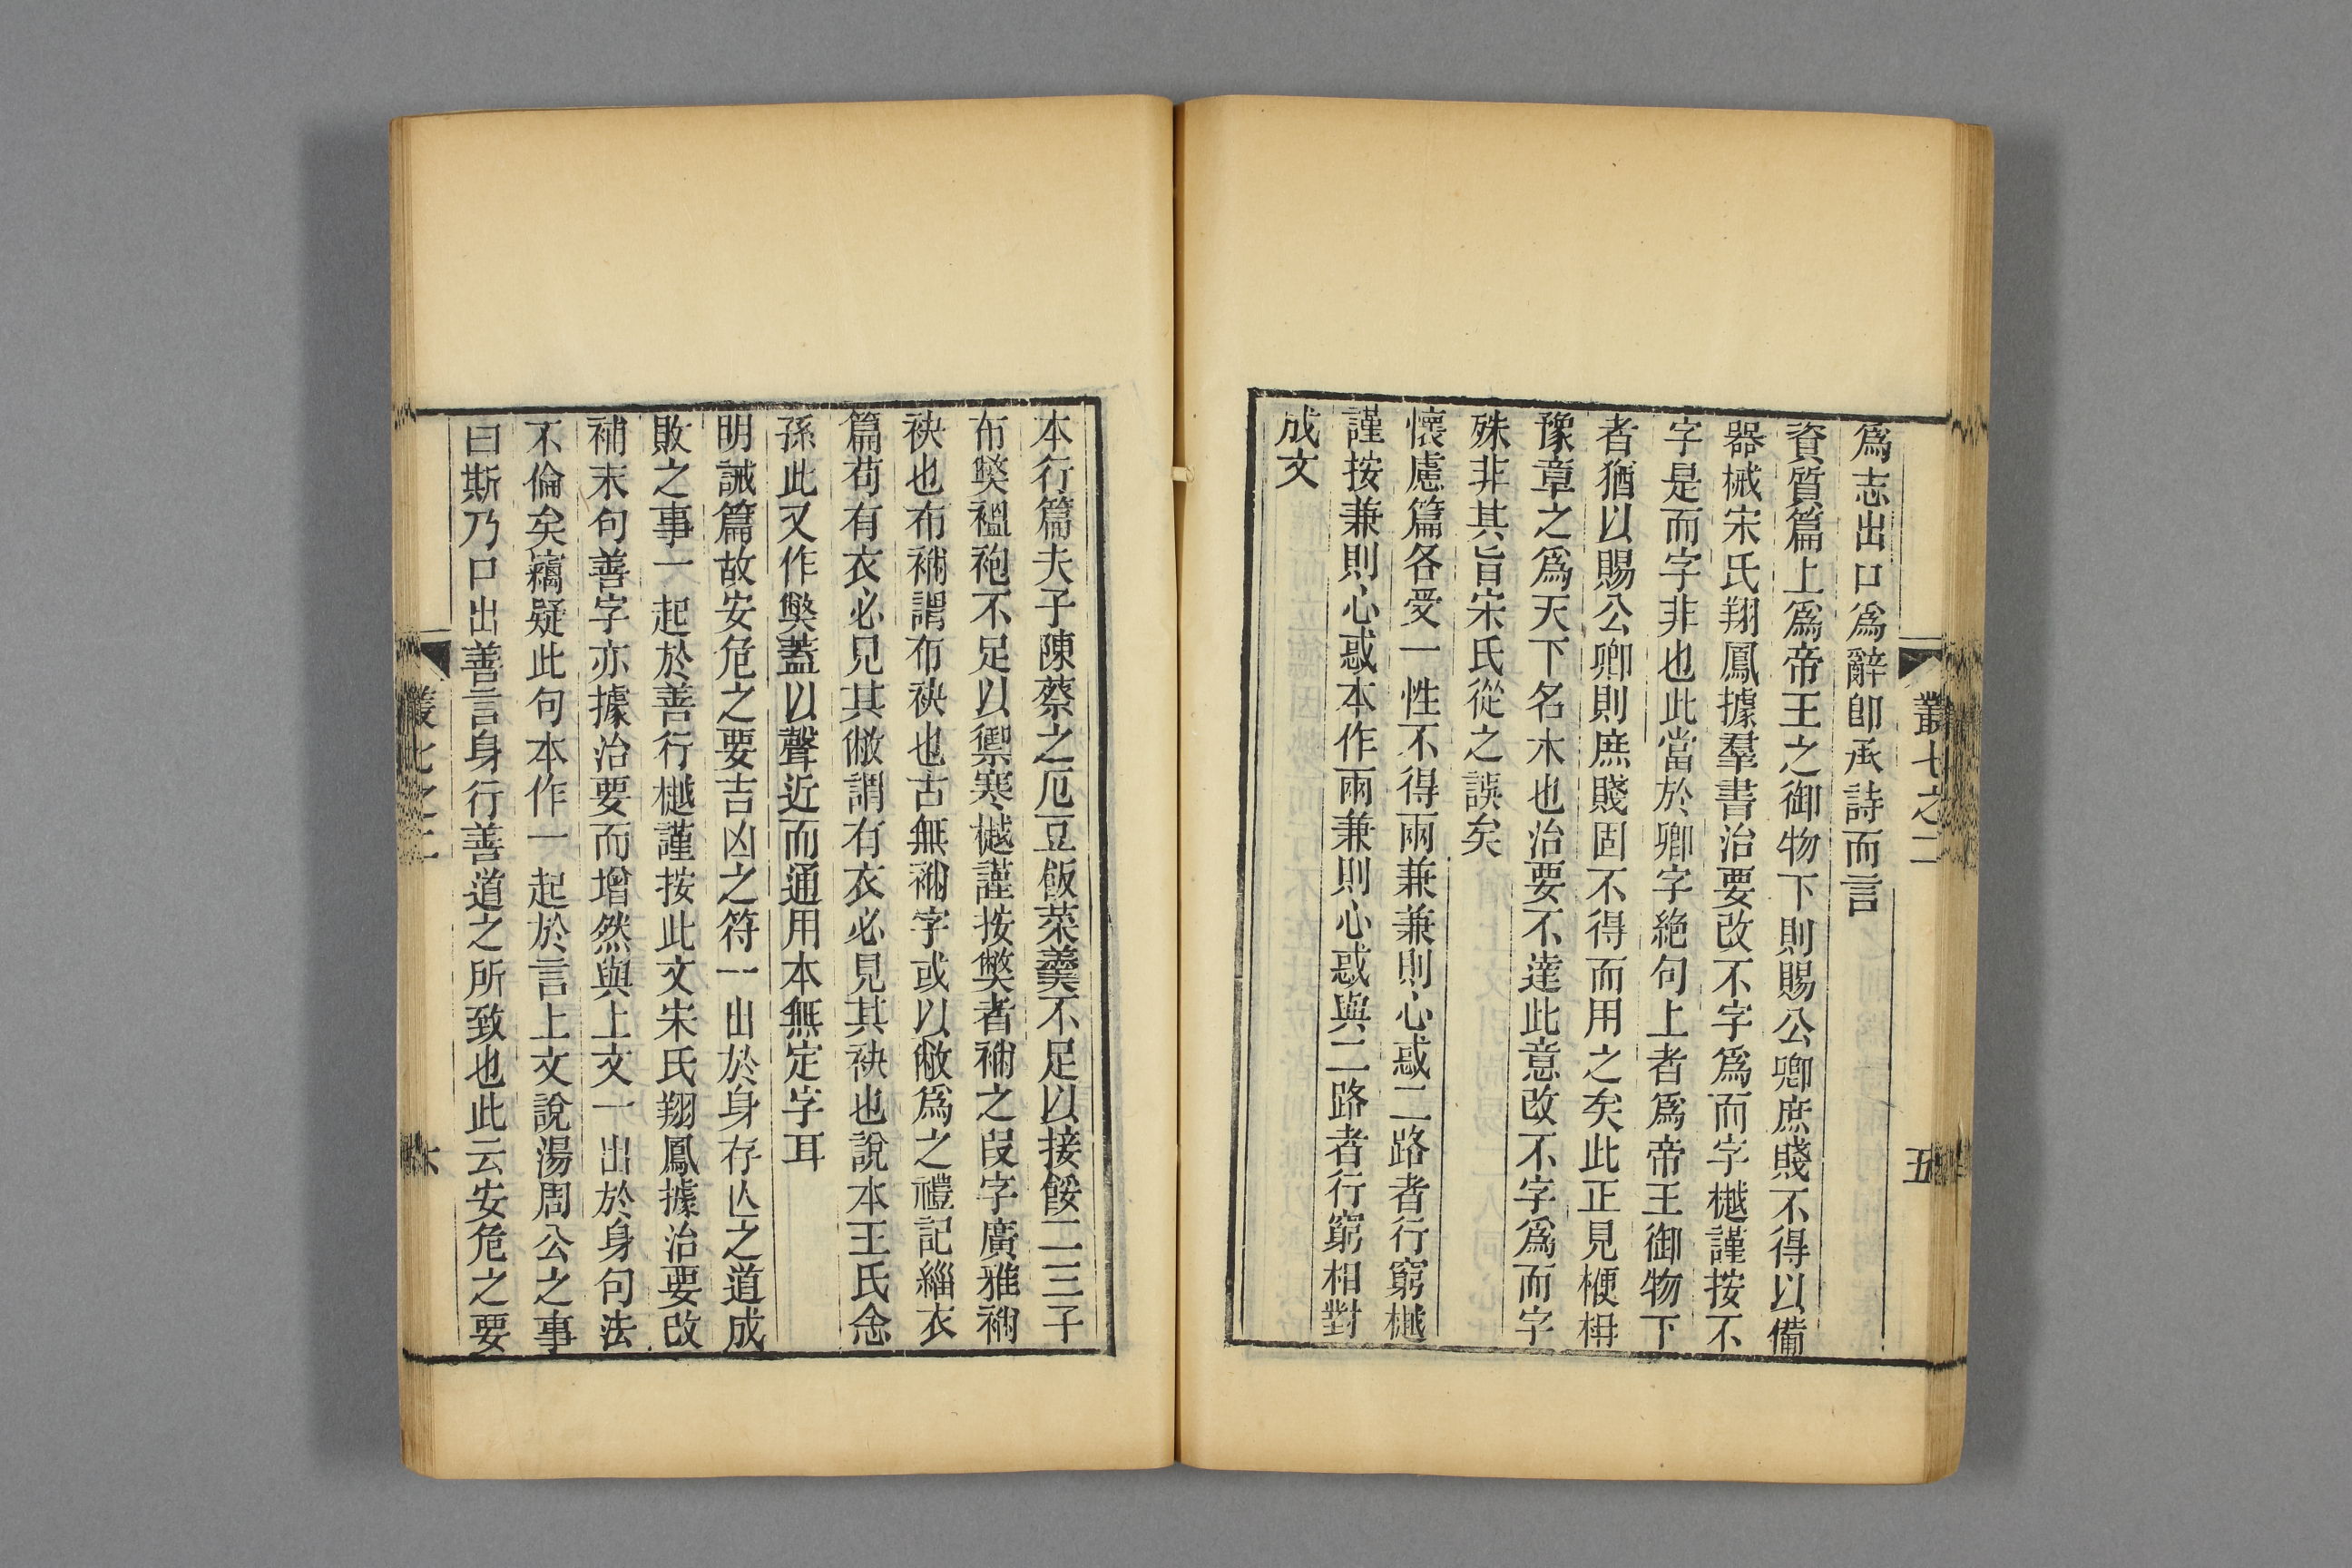 叢七之二
五
爲志出口爲辭卽承詩而言
資質篇上爲帝王之御物下則賜公卿庶賤不得以備
器械宋氏翔鳳據羣書治要改不字爲而字樾謹按不
字是而字非也此當於卿字絶句上者爲帝王御物下
者猶以賜公卿則庶賤固不得而用之矣此正見梗枏
豫章之爲天下名木也治要不達此意改不字爲而字
殊非其旨宋氏從之誤矣
懷慮篇各受一性不得兩兼兼則心惑二路者行窮樾
謹按兼則心惑本作兩兼則心惑與二路者行窮相對
成文
本行篇夫子陳蔡之厄豆飯菜羹不足以接餒二三子
布獘褞袍不足以禦寒樾謹按獘者裲之叚字廣雅裲
袂也布裲謂布袂也古無裲字或以敝爲之禮記緇衣
篇苟有衣必見其敝謂有衣必見其袂也說本王氏念
孫此又作獘蓋以聲近而通用本無定字耳
明誡篇故安危之要吉凶之符一出於身存亾之道成
敗之事一起於善行樾謹按此文宋氏翔鳳據治要改
補末句善字亦據治要而增然與上文一出於身句法
不倫矣竊疑此句本作一起於言上文說湯周公之事
曰斯乃口出善言身行善道之所致也此云安危之要
叢七之二
六